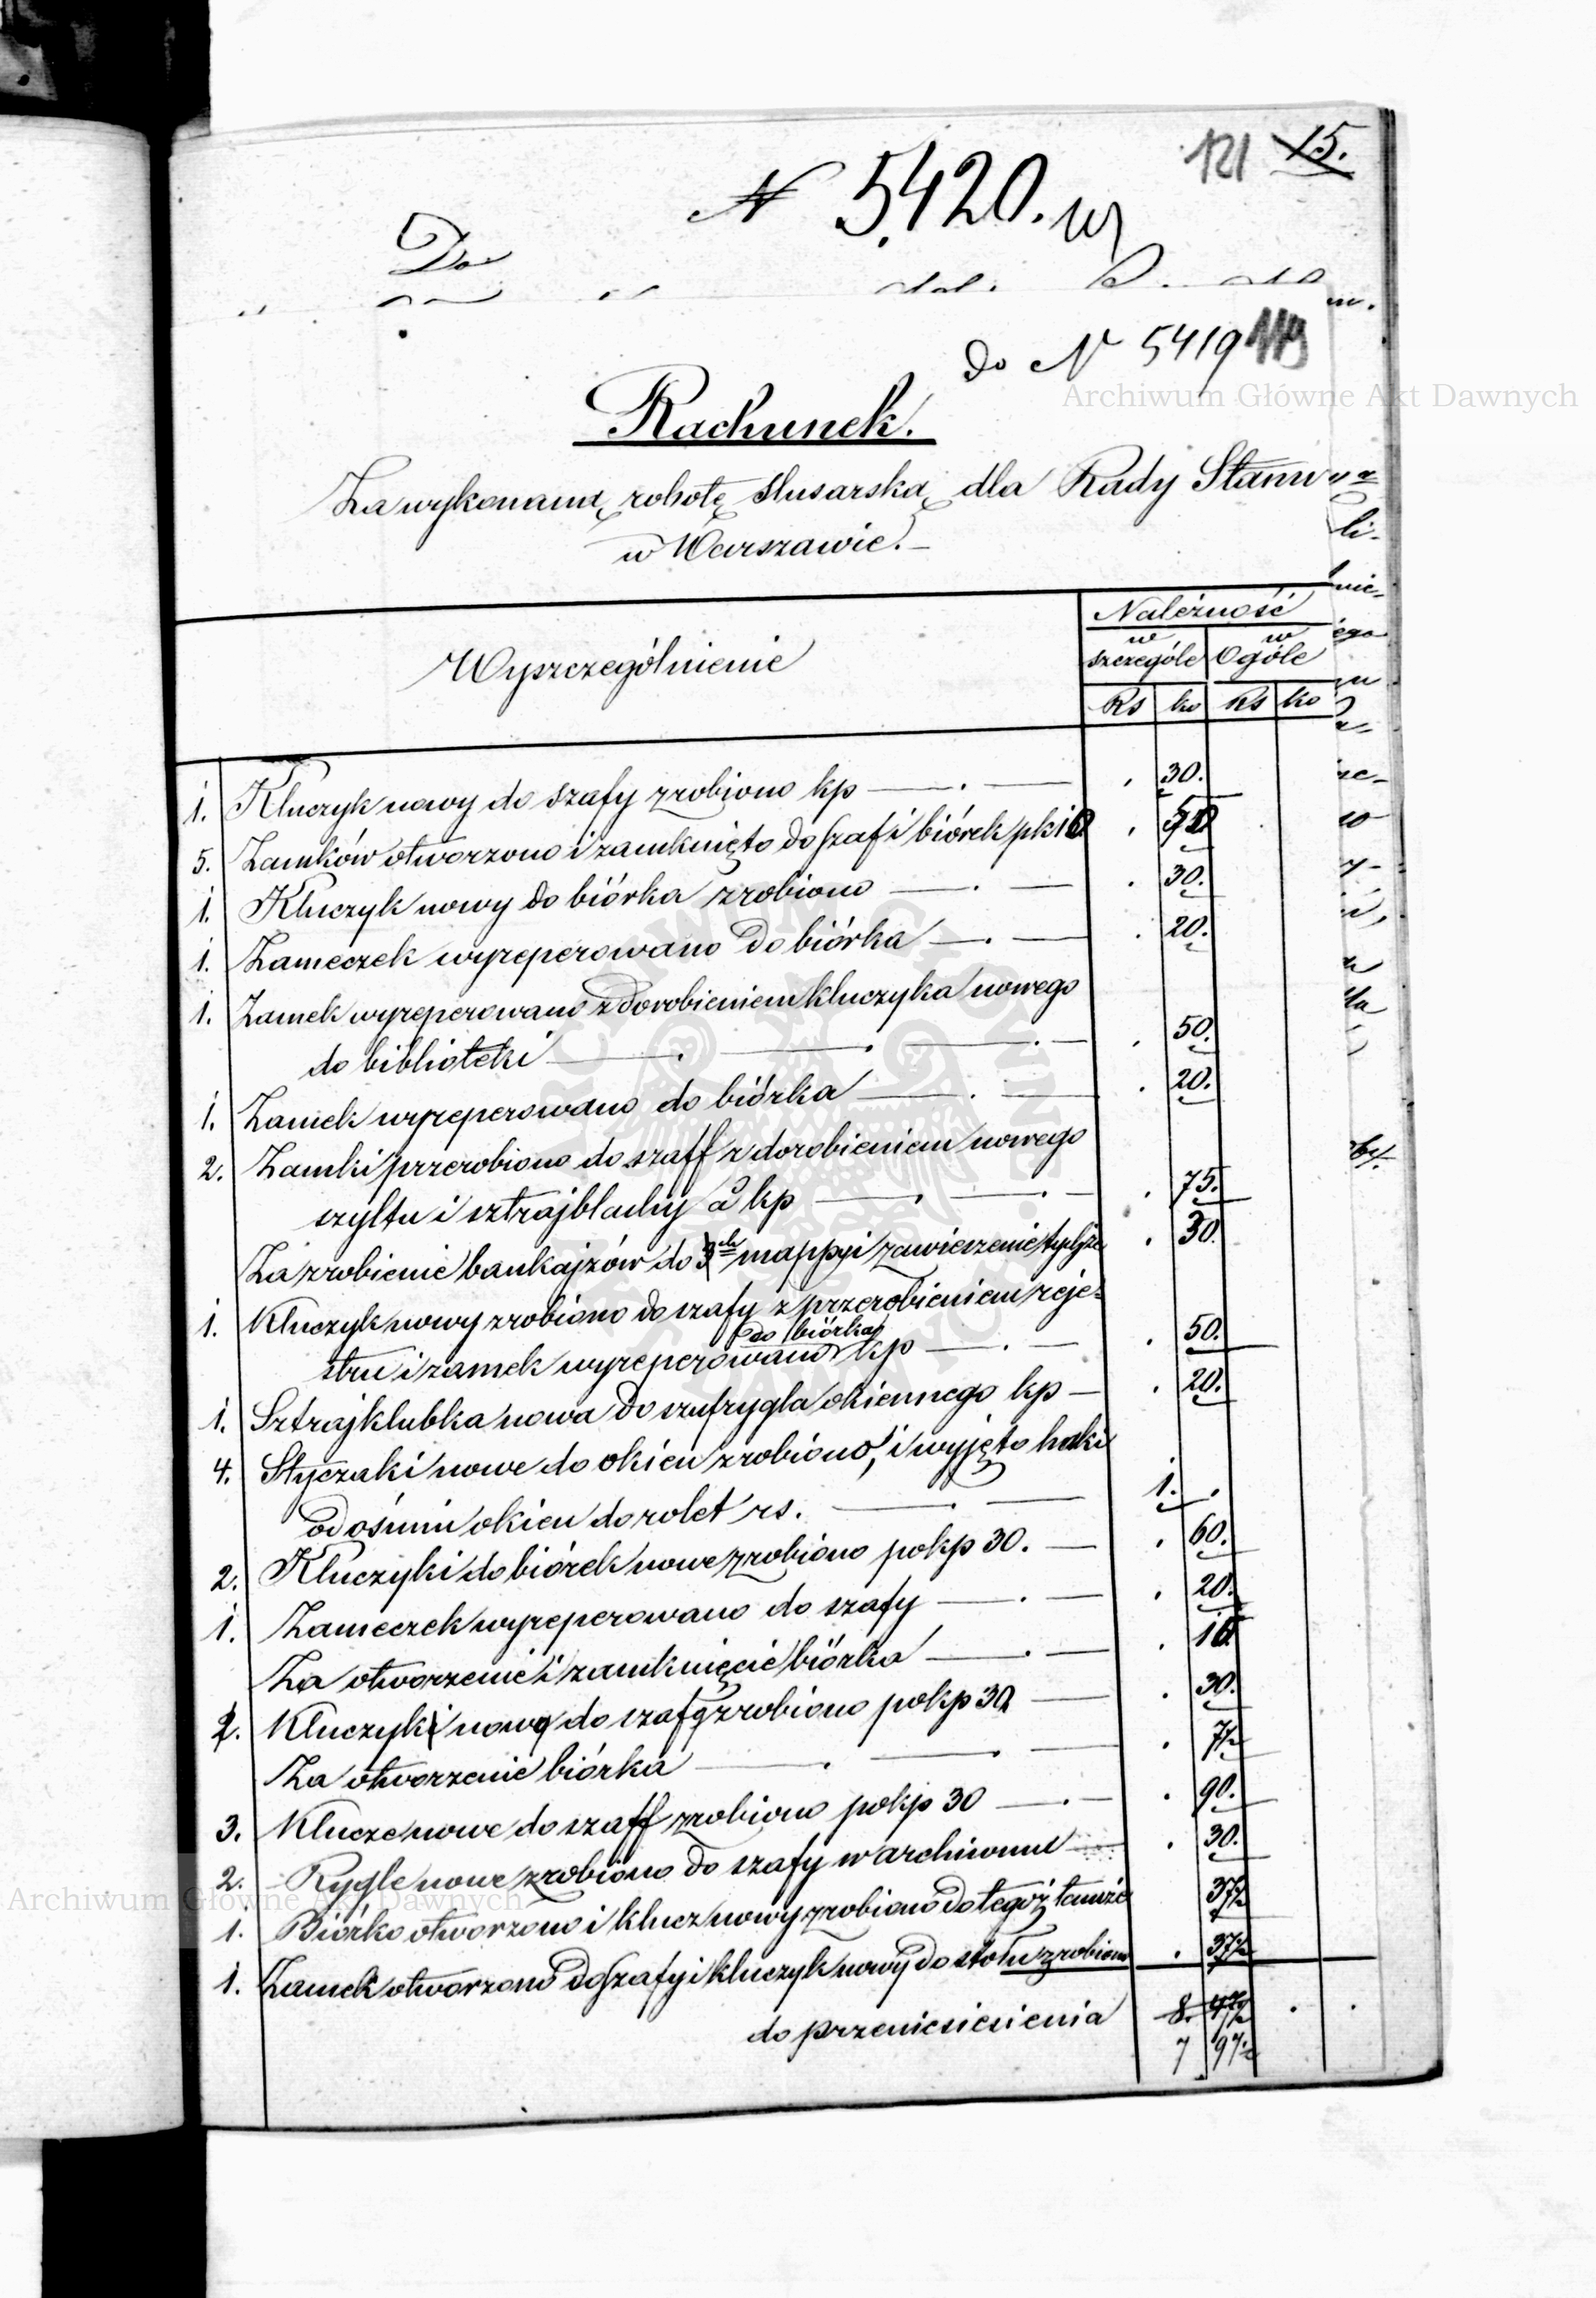 121 15.
N 5420. W
Do
do N 5419
Archiwum Główne Akt Dawnych
Rachunek.
Za wykonaną robotę ślusarską dla Rady Stanu
w Warszawie.
Wyszczególnienie
Należność
w szczególe w Ogóle
Rs ko Rs ko
1. Kluczyk nowy do szafy zrobiono kp . 30.
5. Zamków otworzono i zamknięto do szaf i biórek
1. Kluczyk nowy do biórka zrobiono . 30.
1. Zameczek wyreperowano do biórka . 20.
1. Zamek wyreperowano z dorobieniem kluczyka nowego
do biblioteki . 50.
1. Zamek wyreperowano do biórka . 20.
2. Zamki przerobiono do szaff z dorobieniem nowego
szyltu i sztrajblachy a kp . 75.
Za zrobienie bankajzów do mappy i zawieszenie tychże . 30.
1. Kluczyk nowy zrobiono do szafy z przerobieniem reje=
do biórka
stru i zamek wyreperowano kp . 50.
1. Sztrajklubka nowa do szufrygla okiennego kp . 20.
4. Styczaki nowe do okien zrobiono, i wyjęto haki
od ośmiu okien do rolet rs. 1. .
2. Kluczyki do biórek nowe zrobiono po kp 30. . 60.
1. Zameczek wyreperowano do szafy . 20.
Za otworzenie i zamknięcie biórka
Kluczyk nowy do szafy zrobiono po kp 30 . 30.
Za otworzenie biórka . 7½
3. Klucze nowe do szaff zrobiono po kp 30 . 90.
2. Rygle nowe zrobiono do szafy w archiwum . 30.
1. Biórko otworzono i klucz nowy zrobiono do tegoż tamże 37½
Archiwum Główne Akt Dawnych
1. Zamek otworzono do szafy i kluczyk nowy do stołu zrobiono . 37½
do przeniesienia 8. . .
7 97½